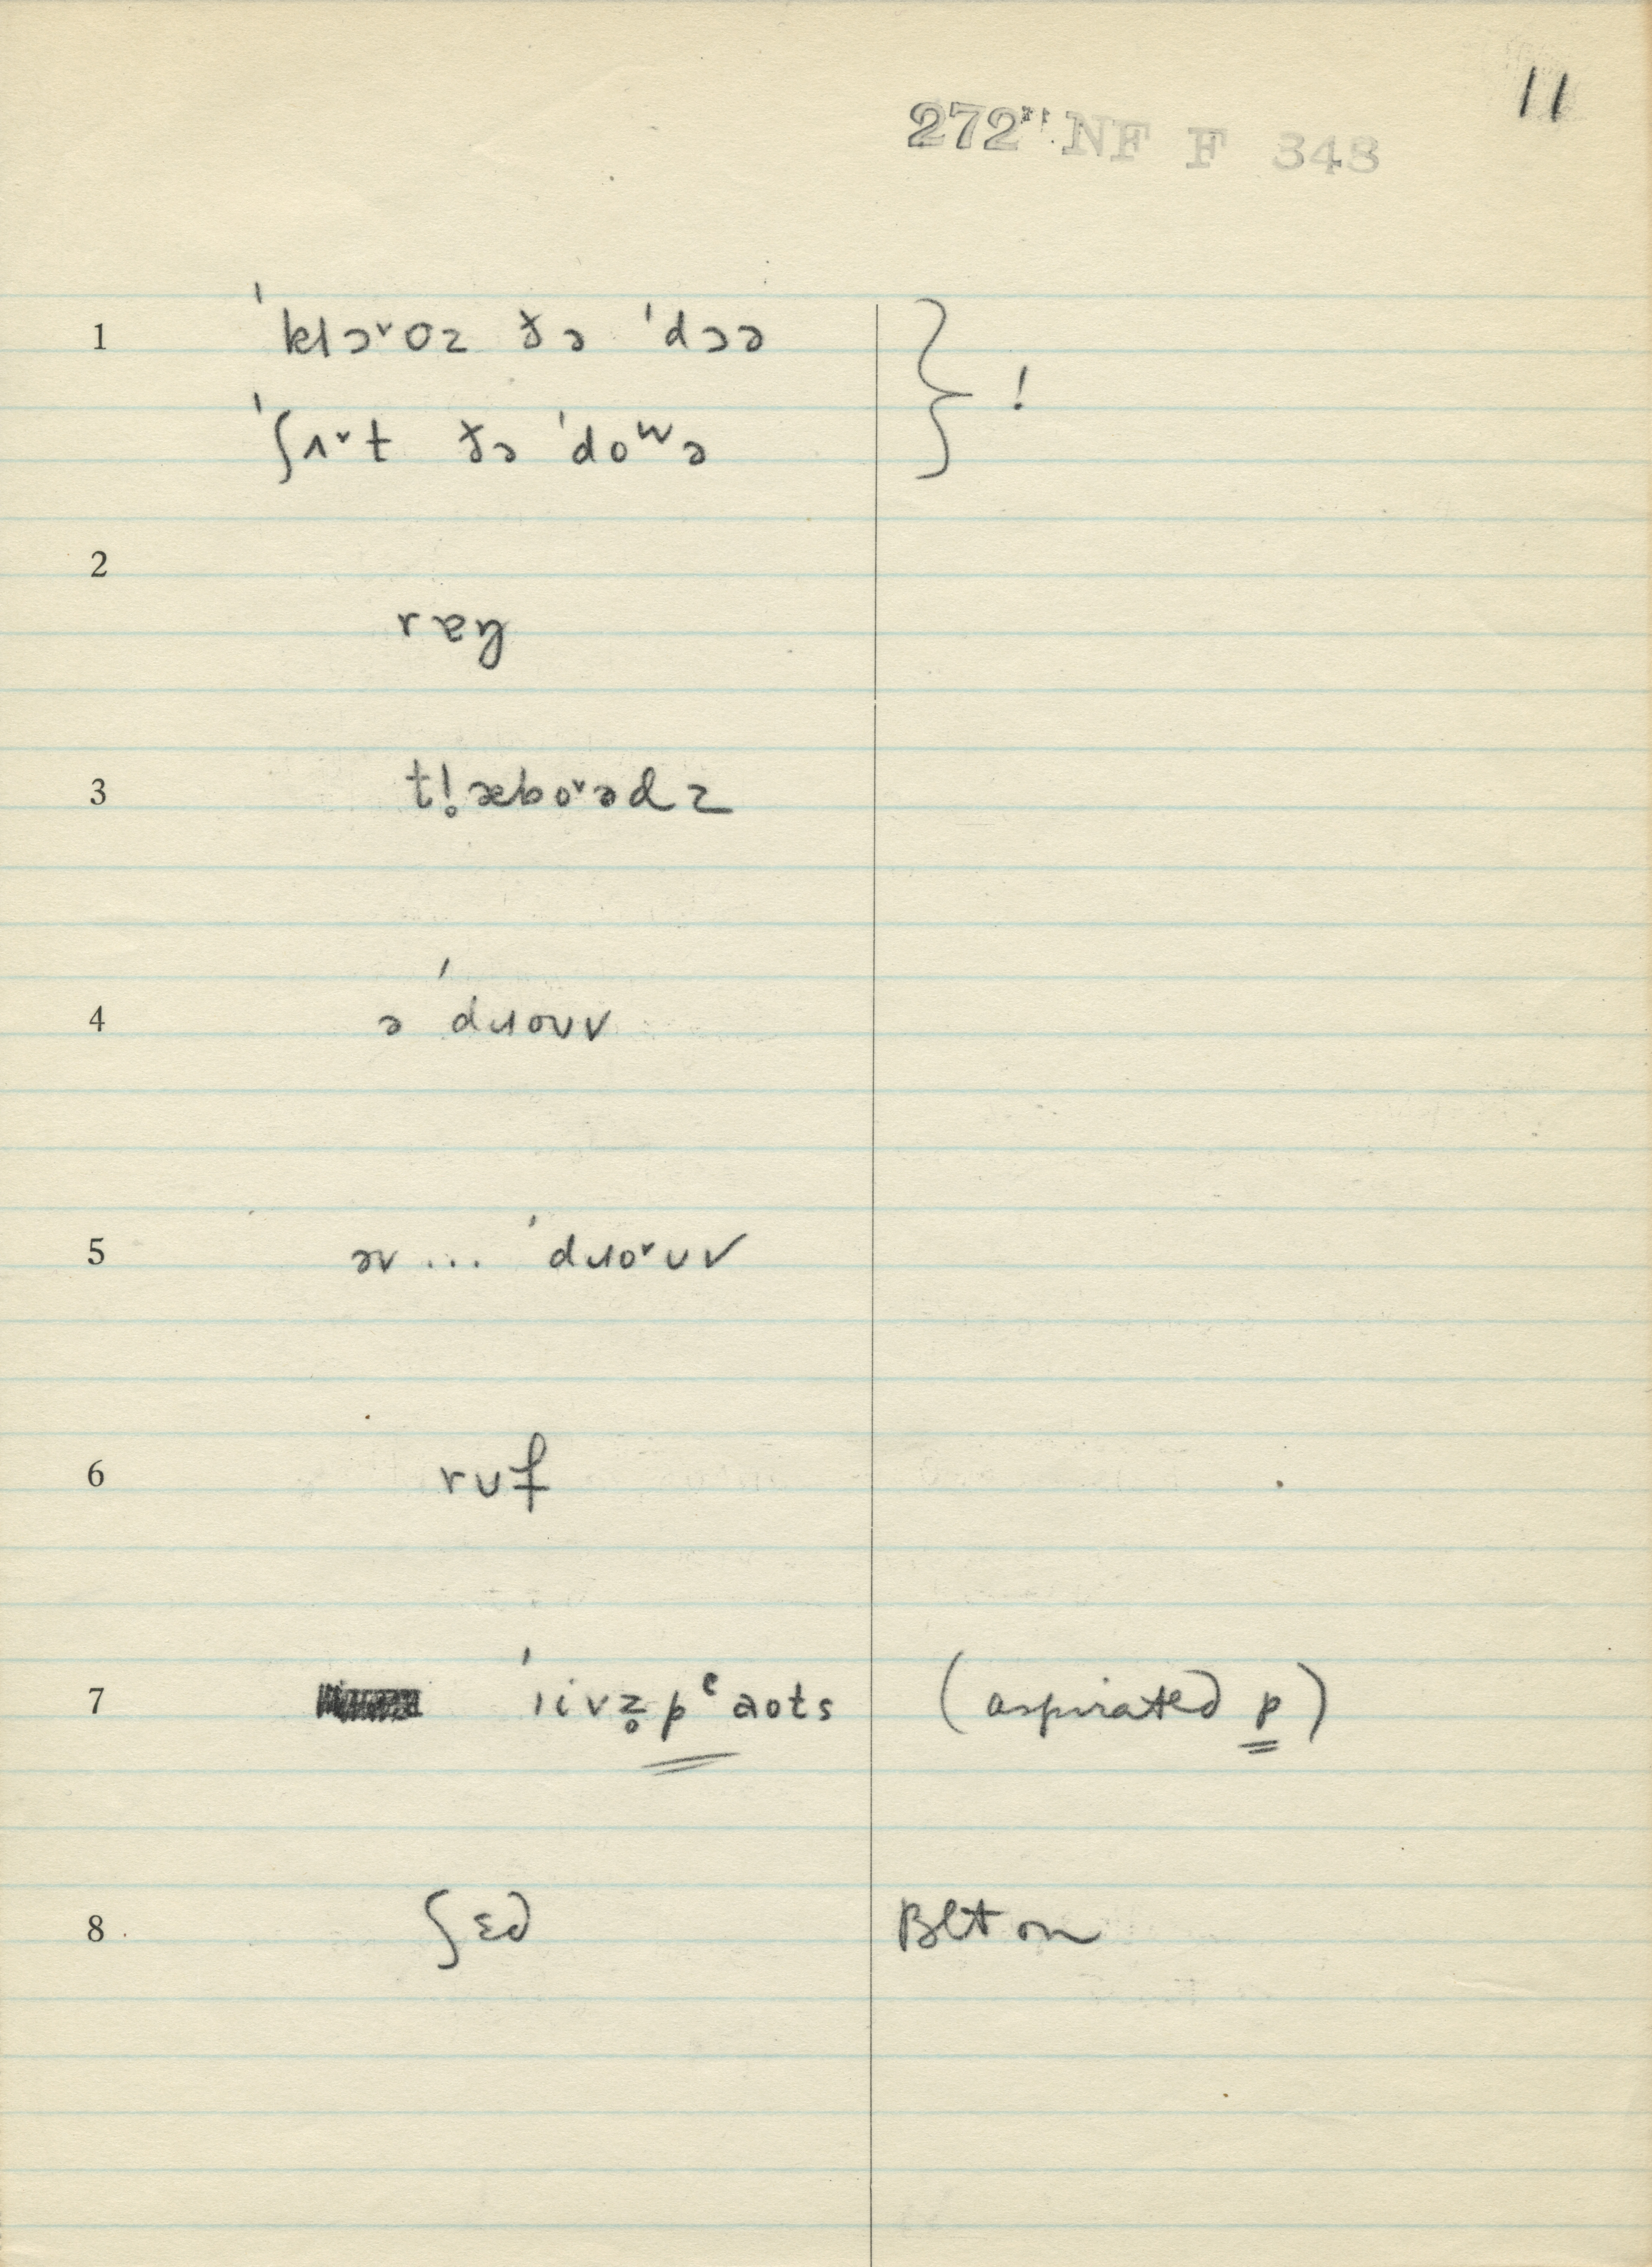 11
272" NF F 348
1 ˈklɔ˅oz ðə ˈdɔə } !
ˈʃʌ˅t ðə ˈdoʷə
2
rɐɣ
3 tl̥æbo˅ədz
4 ə ˈdɹouv
5 əv ... ˈdɹo˅uv
6 ruf
7 ˈɹivz̥pʿaots (aspirated p)
8 ʃɛd Belt on